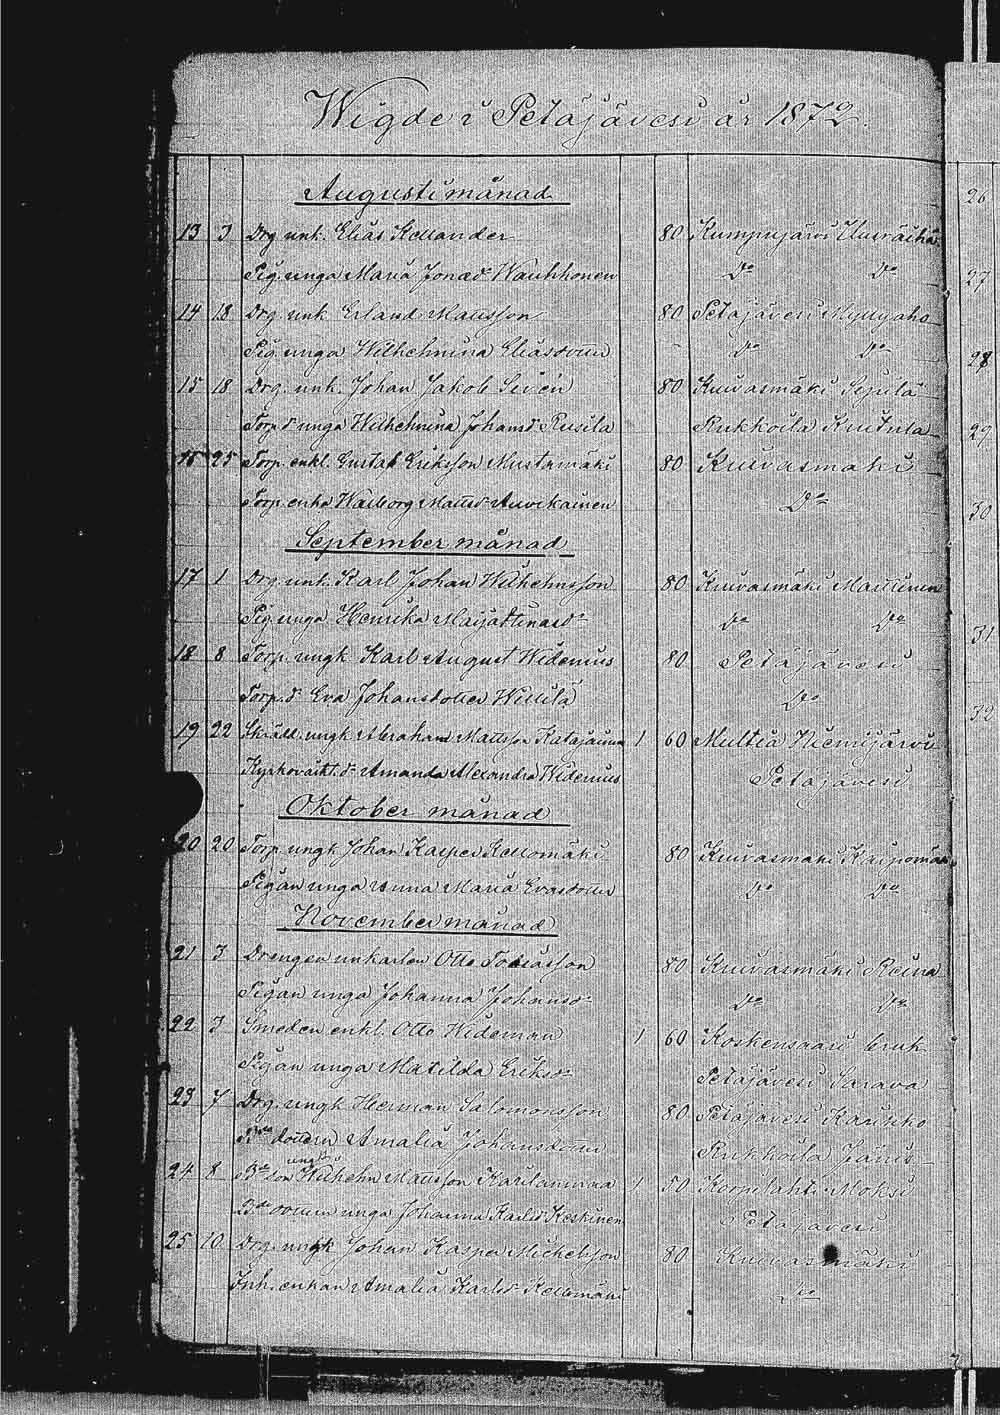 Wigde i Petäjävesi år 1872.
Augusti månad
13 3 Drg. unk. Elias Kellander 80 Kumpujärvi
Pig. unga Maria Jonæd:r Wauhkonen Do Do
14 18 Drg. unk. Erland Matsson 80 Petäjävesi Myllyaho
Pig. unga Wilhelmina Eliasdotter Do Do
15 18 Drg. unk. Johan Jakob Sevén 80 Kuivasmäki
Torp.d:r unga Wilhelmina Johansd:r Rusila Rukkoila
25 Torp. enkl. Gustaf Eriksson Mustamäki 80 Kuivasmäki
Torp. enka Walborg Mattsd:r Do
September månad
17 1 Drg. unk. Karl Johan Wilhelmsson 80 Kuivasmäki Marttinen
Pig. unga Henrika Do Do
18 8 Torp. ungk Karl August Widenius 80 Petäjävesi
Torp.d:r Eva Johansdotter Do
19 22 Skrädd. ungk Abraham Mattsson 1 60 Multia Niemijärvi
Kyrkoväkt.d:r Amanda Alexandra Widenius Petäjävesi
Oktober månad
20 20 Torp. ungk Johan Kasper Kellomäki 80 Kuivasmäki
Pigan unga Anna Maria Evasdotter Do Do
November månad
21 3 Drengen unkarlen Otto Tobiasson 80 Kuivasmäki
Pigan unga Johanna Johansd:r Do Do
22 3 Smeden enkl. Otto Wideman 1 60 Koskensaari bruk
Pigan unga Matilda Eriksd:r Petäjävesi Sarava
23 7 Drg. ungk Herman Salomonsson 80 Petäjävesi Karikko
B:de dottern Amalia Johansdotter Rukkoila
24 8 B:de son ungk Wilhelm Mattsson 1 50 Korpilahti Moksi
B:de dottern unga Johanna Karlsd:r Keskinen Petäjävesi
25 10 Drg. ungk Johan Kasper Mickelsson 80 Kuivasmäki
Inh. enkan Amalia Karlsd:r Kellomäki Do
26
27
28
29
30
31
32